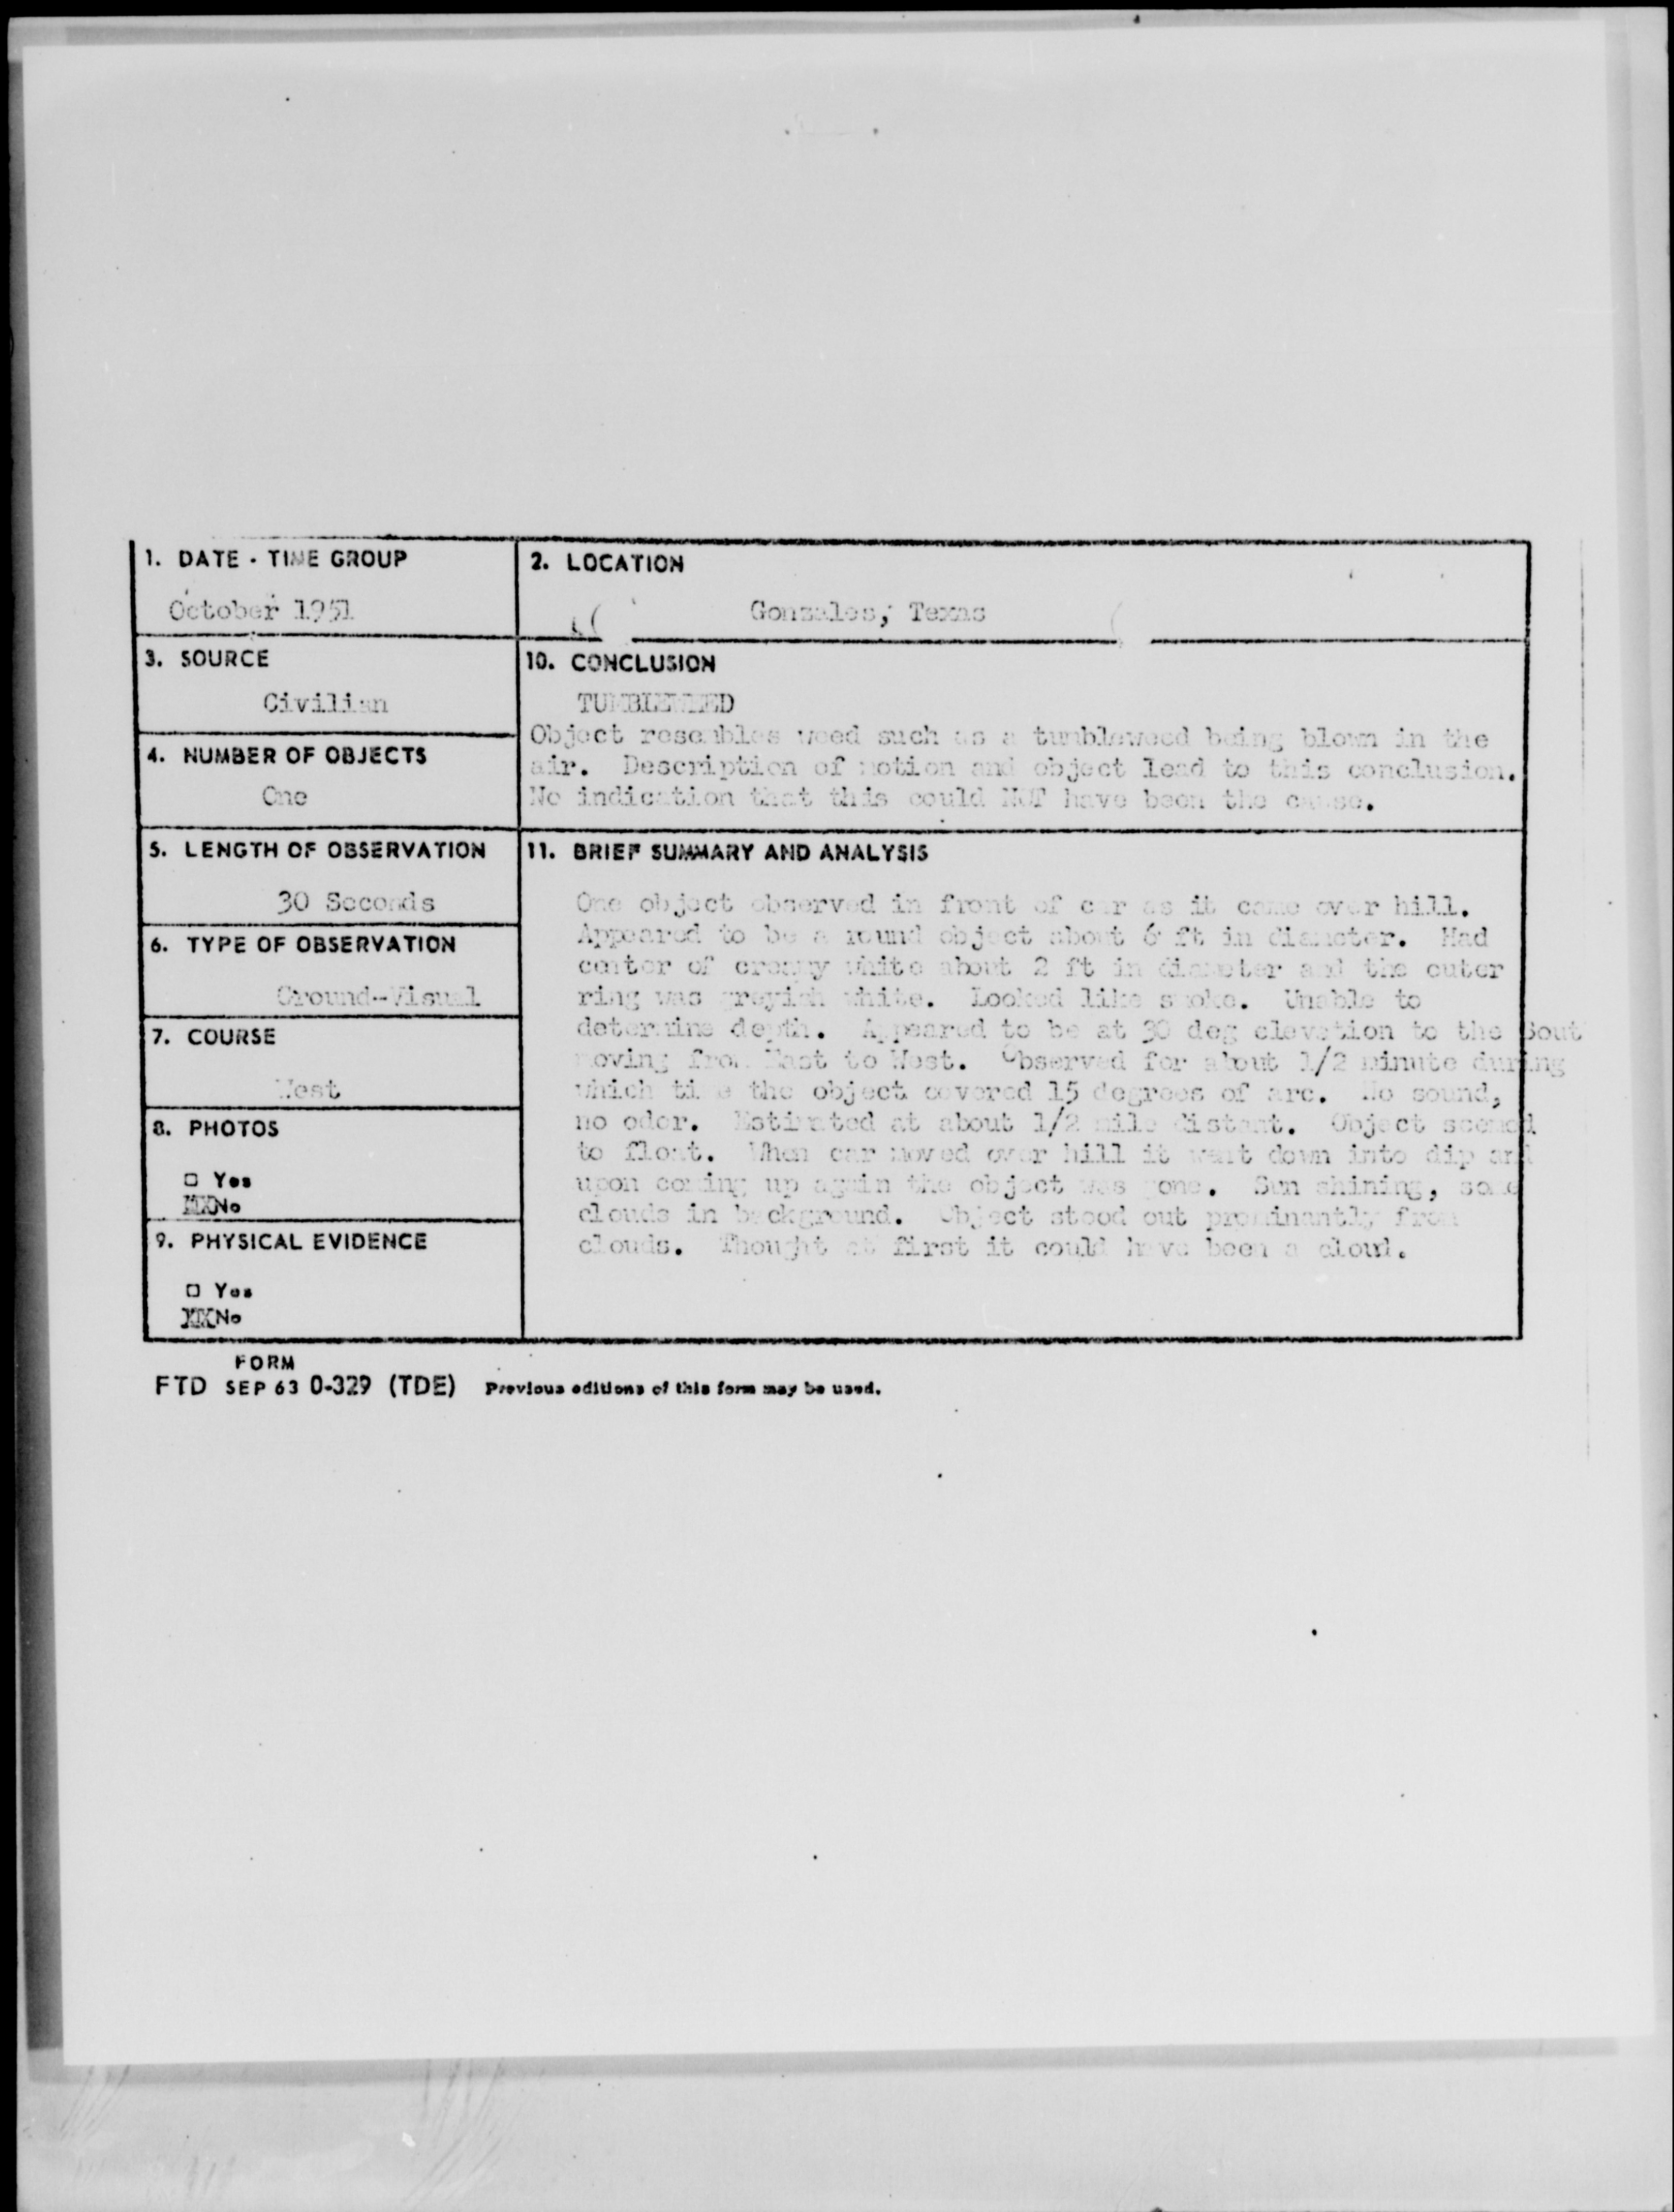 1. DATE - TIME GROUP
October 1951
2. LOCATION
Gonzales, Texas
3. SOURCE
Civilian
10. CONCLUSION
TUMBLEWEED
Object resembles weed such as a tumbleweed being blown in the
air. Description of motion and object lead to this conclusion.
No indication that this could NOT have been the cause.
4. NUMBER OF OBJECTS
One
5. LENGTH OF OBSERVATION
30 Seconds
6. TYPE OF OBSERVATION
Ground-Visual
7. COURSE
West
8. PHOTOS
□ Yes
XXNo
9. PHYSICAL EVIDENCE
□ Yes
XXNo
11. BRIEF SUMMARY AND ANALYSIS
One object observed in front of car as it came over hill.
Appeared to be a round object about 6 ft in diameter. Had
center of creamy white about 2 ft in diameter and the outer
ring was greyish white. Looked like smoke. Unable to
determine depth. Appeared to be at 30 deg elevation to the Sout
moving from East to West. Observed for about 1/2 minute during
which time the object covered 15 degrees of arc. No sound,
no odor. Estimated at about 1/2 mile distant. Object seemed
to float. When car moved over hill it went down into dip and
upon coming up again the object was gone. Sun shining, some
clouds in background. Object stood out prominantly from
clouds. Thought at first it could have been a cloud.
FORM
FTD SEP 63 0-329 (TDE) Previous editions of this form may be used.